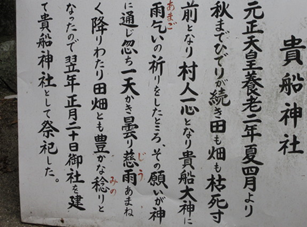 貴船神社
元正天皇養老二年夏四月より
秋までひでりが続き田も畑も枯死寸
前となり村人一心となり貴船大神に
雨乞いの祈りをしたところ、その願いが神
に通じ忽ち一天かき曇り慈雨あまね
く降りわたり田畑とも豊かな稔りと
なったので翌年正月二十日御社を建
て貴船神社として祭祀した。